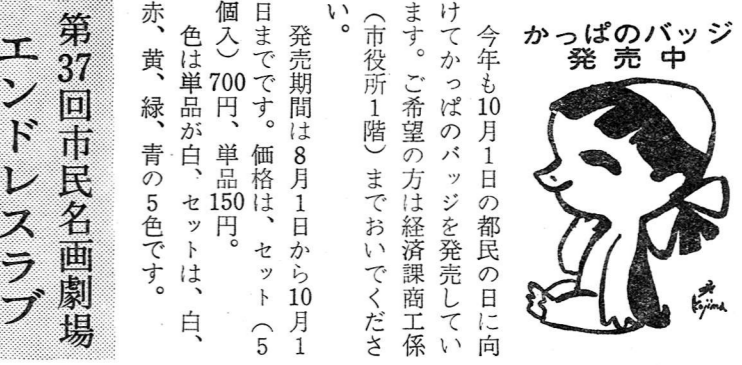 かっぱのバッジ
発売中
今年も10月1日の都民の日に向
けてかっぱのバッジを発売してい
ます。ご希望の方は経済課商工係
（市役所1階）までおいでくださ
い。
発売期間は8月1日から10月1
日までです。価格は、セット（5
個入）700円、単品150円。
色は単品が白、セットは、白、
赤、黄、緑、青の5色です。
Kojima
第37回市民名画劇場
エンドレスラブ